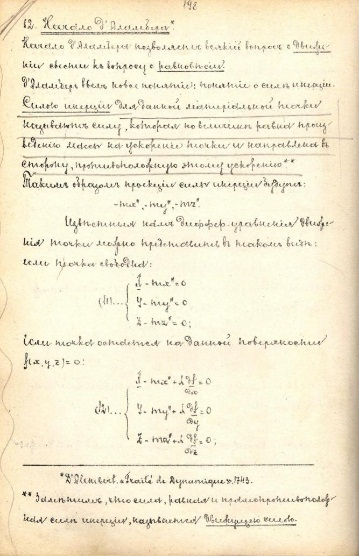 192
62. Начало Д'Аламбера*.
Начало Д'Аламбера позволяетъ всякій вопросъ о движе-
ніи свести къ вопросу о равновѣсіи.
Д'Аламберъ ввелъ новое понятіе: понятіе о силѣ инерціи.
Силою инерціи для данной матеріальной точки
называютъ силу, которая по величинѣ равна произ
веденію массы на ускореніе точки и направлена въ
сторону, противоположную этому ускоренію**
Такимъ образомъ проекціи силы инерціи будутъ:
-mx'', -my'', -mz''.
Извѣстныя намъ диффер. уравненія движе
нія точки можно представить въ такомъ видѣ:
если точка свободна:
(1)... { X - mx'' = 0
Y - my'' = 0
Z - mz'' = 0;
если точка остается на данной поверхности
f(x, y, z) = 0:
(2)... { X - mx'' + λ ∂f/∂x = 0
Y - my'' + λ ∂f/∂y = 0
Z - mz'' + λ ∂f/∂z = 0;
* D'Alembert. «Traité de Dynamique», 1743.
** Замѣтимъ, что сила, равная и прямопротивополож
ная силѣ инерціи, называется движущею силою.